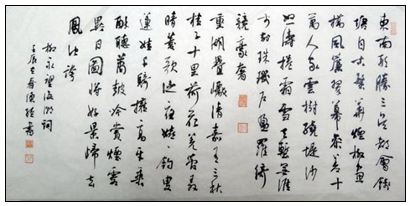 東南形勝三吳都會錢
塘自古繁華煙柳畫
橋風簾翠幕參差十
萬人家雲樹繞堤沙
怒濤捲霜雪天塹無涯
市列珠璣戶盈羅綺
競豪奢
重湖疊巘清嘉有三秋
桂子十里荷花羌管弄
晴菱歌泛夜嬉嬉釣叟
蓮娃千騎擁高牙乘
醉聽簫鼓吟賞煙霞
異日圖將好景歸去
鳳池誇
柳永望海潮詞
壬辰 書